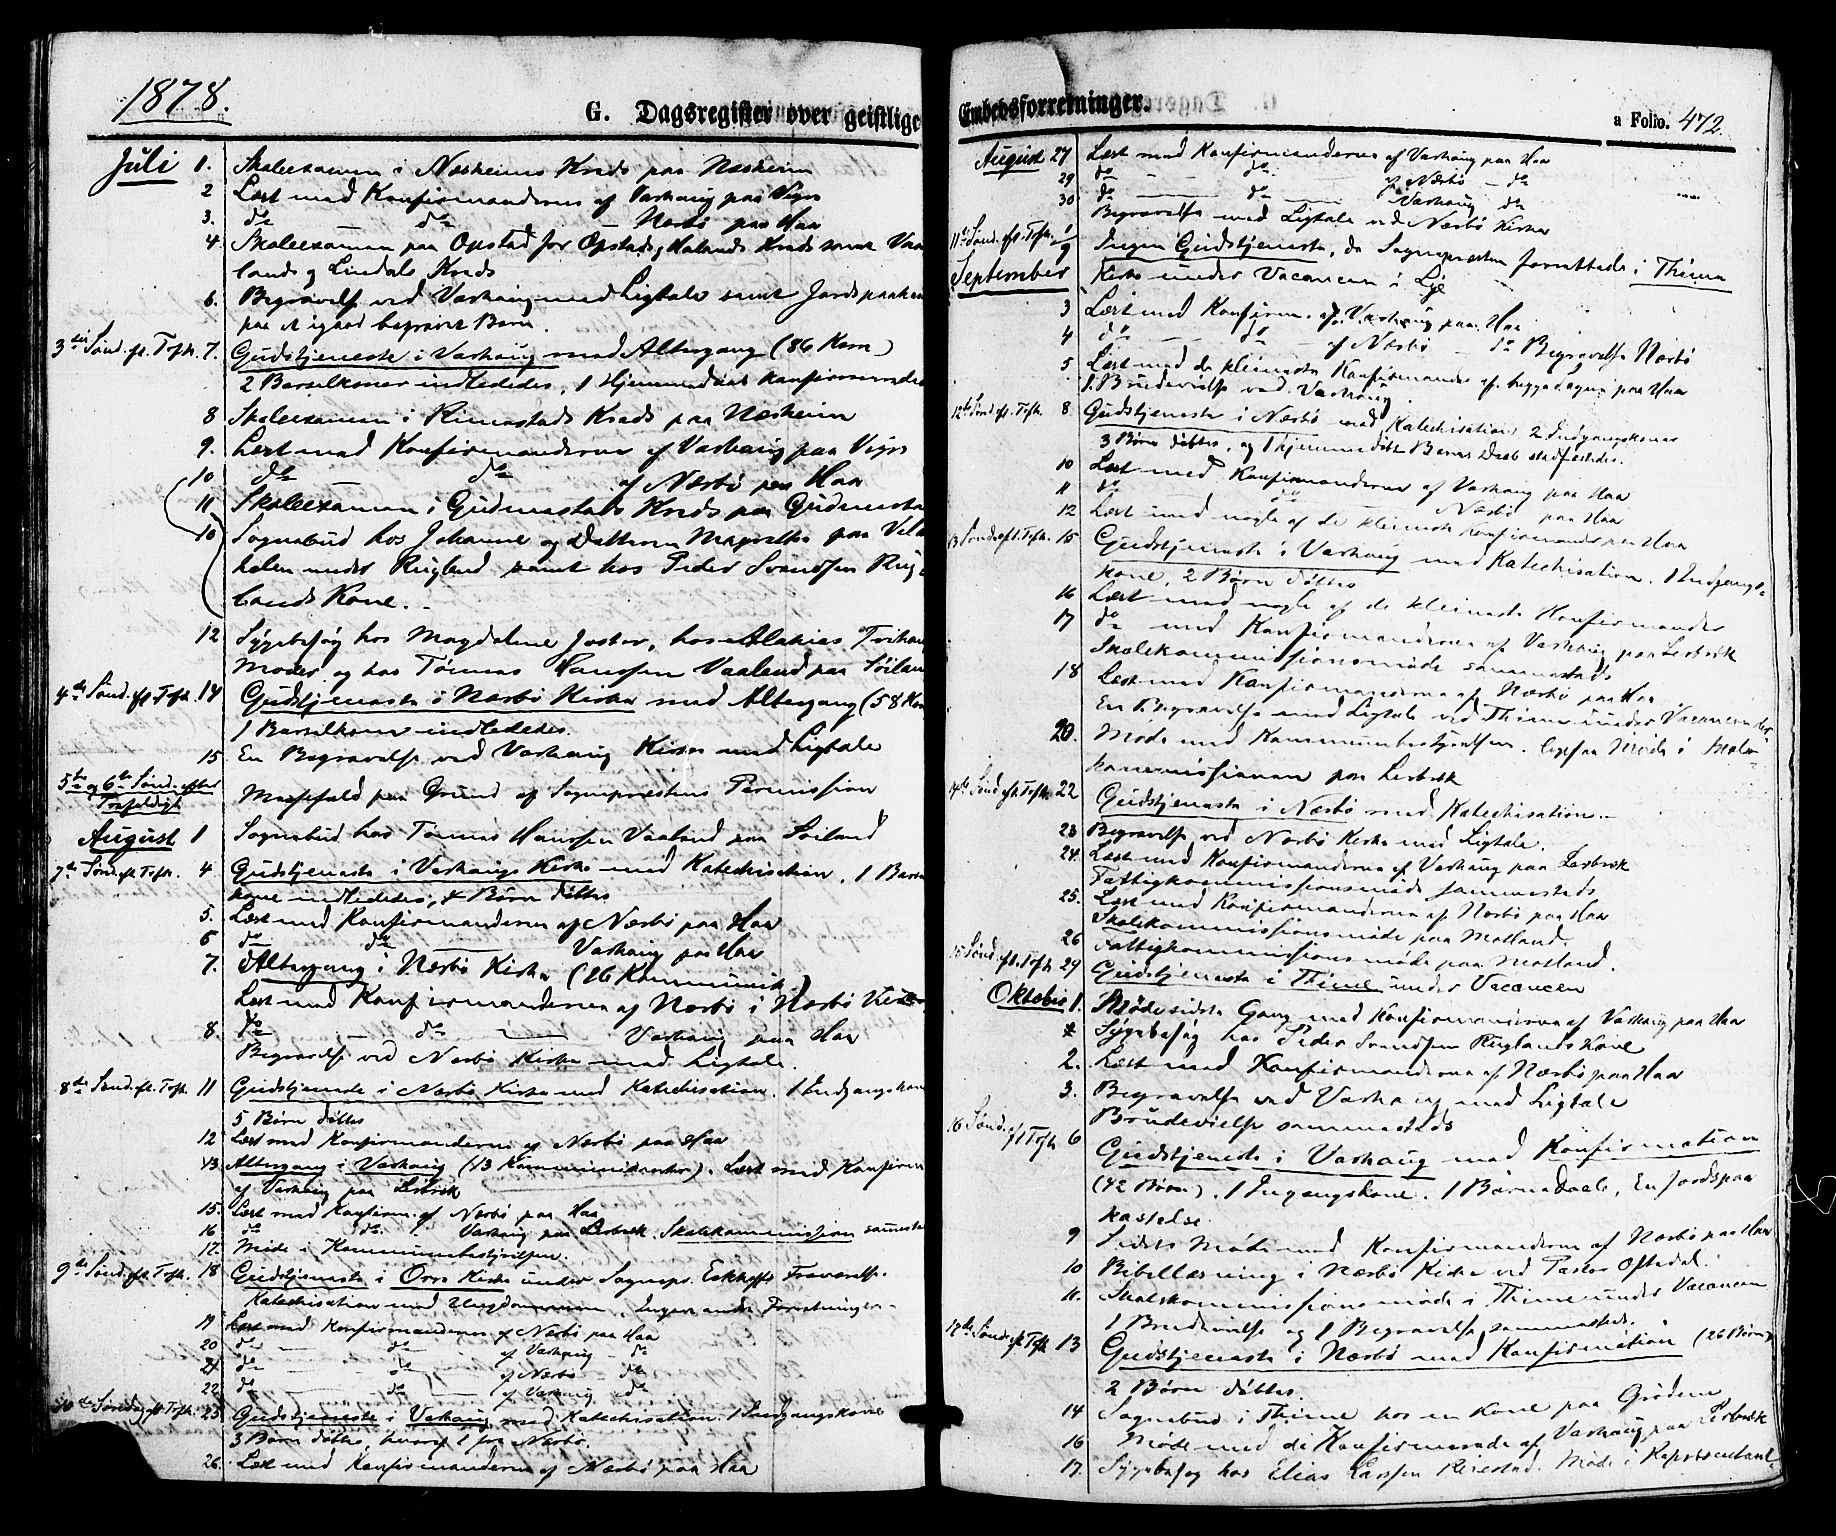 1878.
G. Dagsregister over geistlige
Juli 1. Skoleexamen i Næsheims Kreds paa Næsheim
2 Læst med Konfirmanderne af Varhaug paa Vigre
3. do do Nærbø paa Haa
4. Skoleexamen paa Opstad for Opstad og Hølands Kreds samt
lands og Lindals Kreds
6. Begravelse ved Varhaug med Ligtale samt Jordspaakas
paa et igaar begravet Barn.
3die Sønd. ft. Trefh. 7. Gudstjeneste i Varhaug med Altergang (86 Kom.)
2 Barselkoner indlededes, 1 Hjemmedøbt konfirmeredes
8 Skoleexamen i Rimestads Kreds paa Næsheim
9. Læst med Konfirmanderne af Varhaug paa Vigre
10 do do af Nærbø paa Haa
11 Skoleexamen i Gudmestads Kreds paa Gudmesta
10 Sognebud hos Johanne og Datteren Magrethe paa
holen under Rugland samt hos Peder Svendsen Rug
lands Kone.
12. Sygebesøg hos Magdalene Joster, hos
Moder, og hos Tønnes Hanssen Vaaland paa Søiland
4de Sønd. ft. Trefh. 14 Gudstjeneste i Nærbø Kirke med Altergang (58 Kom
1 Barselkone indlededes.
15. En Begravelse ved Varhaug Kirke med Ligtale
5te og 6te Sønd. efter
Trefoldigh
Messefald paa Grund af Sognepræstens Permission
August 1 Sognebud hos Tønnes Hanssen Vaaland paa Søiland
7de Sønd. ft. Trefh. 4 Gudstjeneste i Varhaugs Kirke med Katechisation, 1 Barsel
kone indlededes, 4 Børn døbtes
5. Læst med Konfirmanderne af Nærbø paa Haa
6 do do Varhaug paa Haa
7. Altergang i Nærbø Kirke (26 Kommunik.)
Læst med Konfirmanderne af Nærbø i Nærbø Kirke
8. do do Varhaug paa Haa
Begravelse ved Nærbø Kirke med Ligtale.
8de Sønd. ft. Trefh. 11 Gudstjeneste i Nærbø Kirke med Katechisation. 1 Indgangskone
5 Børn døbtes
12 Læst med Konfirmanderne af Nærbø paa Haa
13. Altergang i Varhaug (13 Kommunikanter). Læst med Konfirm
af Varhaug paa Lerbrek
15. Læst med Konfirm. af Nærbø paa Haa
16 do do. Varhaug paa Lerbrek. Skolekommission sammesteds
17. Møde i Kommunebestyrelsen.
9de Sønd. ft. Trefh. 18 Gudstjeneste i Orre Kirke under Sognepr. Eckhoffs Fraværelse.
Katechisation med Ungdommen, Ingen andre Forretninger.
19 Læst med Konfirmanderne af Nærbø paa Haa
20 do do af Varhaug do
21 do do af Nærbø do
22 do do af Varhaug do
10de Søndag ft. Trefh. 25 Gudstjeneste i Varhaug med Katechisation. 1 Indgangskone
3 Børn døbtes, hvoraf 1 fra Nærbø.
26. Læst med Konfirmanderne af Nærbø paa Haa
Embedsforretninger.
a Folio. 472.
August 27 Læst med Konfirmanderne af Varhaug paa Haa
29 do do af Nærbø do
30 do do Varhaug do
Begravelse med Ligtale ved Nærbø Kirke
11te Sønd. ft. Trefh. 1/9 Ingen Gudstjeneste, da Sognepræsten forrettede i Thime
September Kirke under Vacancen i Lye
3 Læst med Konfirm. af Varhaug paa Haa
4 do do af Nærbø do Begravelse Nærbø
5 Læst med de kleineste Konfirmander af begge Sogne paa Haa
1 Brudevielse ved Varhaug.
12te Sønd. ft. Trefh. 8 Gudstjeneste i Nærbø med Katechisation 2 Indgangskoner
3 Børn døbtes, og 1 hjemmedøbt Barns Daab stadfæstedes.
10 Læst med Konfirmanderne af Varhaug paa Haa
11 do do Nærbø paa Haa
12 Læst med nogle af de kleineste Konfirmander paa Haa
13 Sønd. ft. Trefh. 15 Gudstjeneste i Varhaug med Katechisation. 1 Indgangs-
kone, 2 Børn døbtes
16 Læst med nogle af de kleineste Konfirmander
17 do med Konfirmanderne af Varhaug paa Lerbrek
Skolekommissionsmøde sammesteds
18 Læst med Konfirmanderne af Nærbø paa Haa
En Begravelse med Ligtale ved Thime under Vacancen
20. Møde med Kommunebestyrelsen, ligesaa Møde i Skole-
kommissionen paa Lerbrek
14de Sønd. ft. Trefh. 22 Gudstjeneste i Nærbø med Katechisation.
23 Begravelse ved Nærbø Kirke med Ligtale.
24. Læst med Konfirmanderne af Varhaug paa Lerbrek
Fattigkommissionsmøde sammesteds
25. Læst med Konfirmanderne af Nærbø paa Haa
Skolekommissionsmøde paa Motland.
26 Fattigkommissionsmøde paa Motland.
15 Sønd. ft. Trefh. 29 Gudstjeneste i Thime under Vacancen
Oktober 1. Møde sidste Gang med Konfirmanderne af Varhaug paa Haa
Sygebesøg hos Peder Svendsen Ruglands Kone
2. Læst med Konfirmanderne af Nærbø paa Haa
3. Begravelse ved Varhaug med Ligtale
Brudevielse sammesteds
16 Sønd. ft Trefh 6 Gudstjeneste i Varhaug med Konfirmation
(42 Børn). 1 Ingangskone. 1 Barnedaab, En Jordspaa
kastelse.
9 Sidste Møde med Konfirmanderne af Nærbø paa Haa
10 Bibellæsning i Nærbø Kirke ved Pastor Oftedal.
11. Skolekommissionsmøde i Thime under Vacancen
1 Brudevielse og 1 Begravelse sammesteds.
17de Sønd. ft. Trefh 13 Gudstjeneste i Nærbø med Konfirmation (26 Børn)
2 Børn døbtes.
14 Sognebud i Thime hos en Kone paa Grødem
16 Møde med de Konfirmerede af Varhaug paa Lerbrek
17. Sygebesøg hos Elias Larssen Reiestad. Møde i Repræsentant